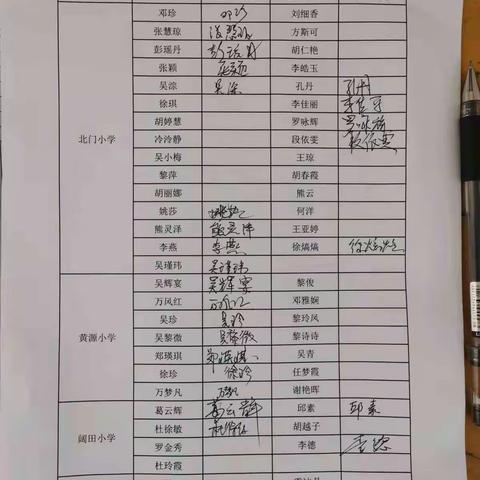 邓珍 邓珍 刘细香
张慧琼 张慧琼 方斯可
彭瑶丹 彭瑶丹 胡仁艳
张颖 张颖 李皓玉
吴淙 吴淙 孔丹 孔丹
徐琪 李佳丽 李佳丽
胡婷慧 罗咏辉 罗咏辉
北门小学 冷泠静 段依雯 段依雯
吴小梅 王琼
黎萍 胡春霞
胡丽娜 熊云
姚莎 姚莎 何洋
熊灵泽 熊灵泽 王亚婷
李燕 李燕 徐熇熇 徐熇熇
吴瑾玮 吴瑾玮
吴辉宴 吴辉宴 黎俊
万风红 邓雅娴
吴珍 吴珍 黎玲凤
黄源小学 吴黎微 吴黎微 黎诗诗
郑瑛琪 郑瑛琪 吴青
徐珍 徐珍 任梦霞
万梦凡 谢艳晖
葛云辉 葛云辉 邱素 邱素
阔田小学 杜徐敏 胡越子
罗金秀 李德 李德
杜玲霞